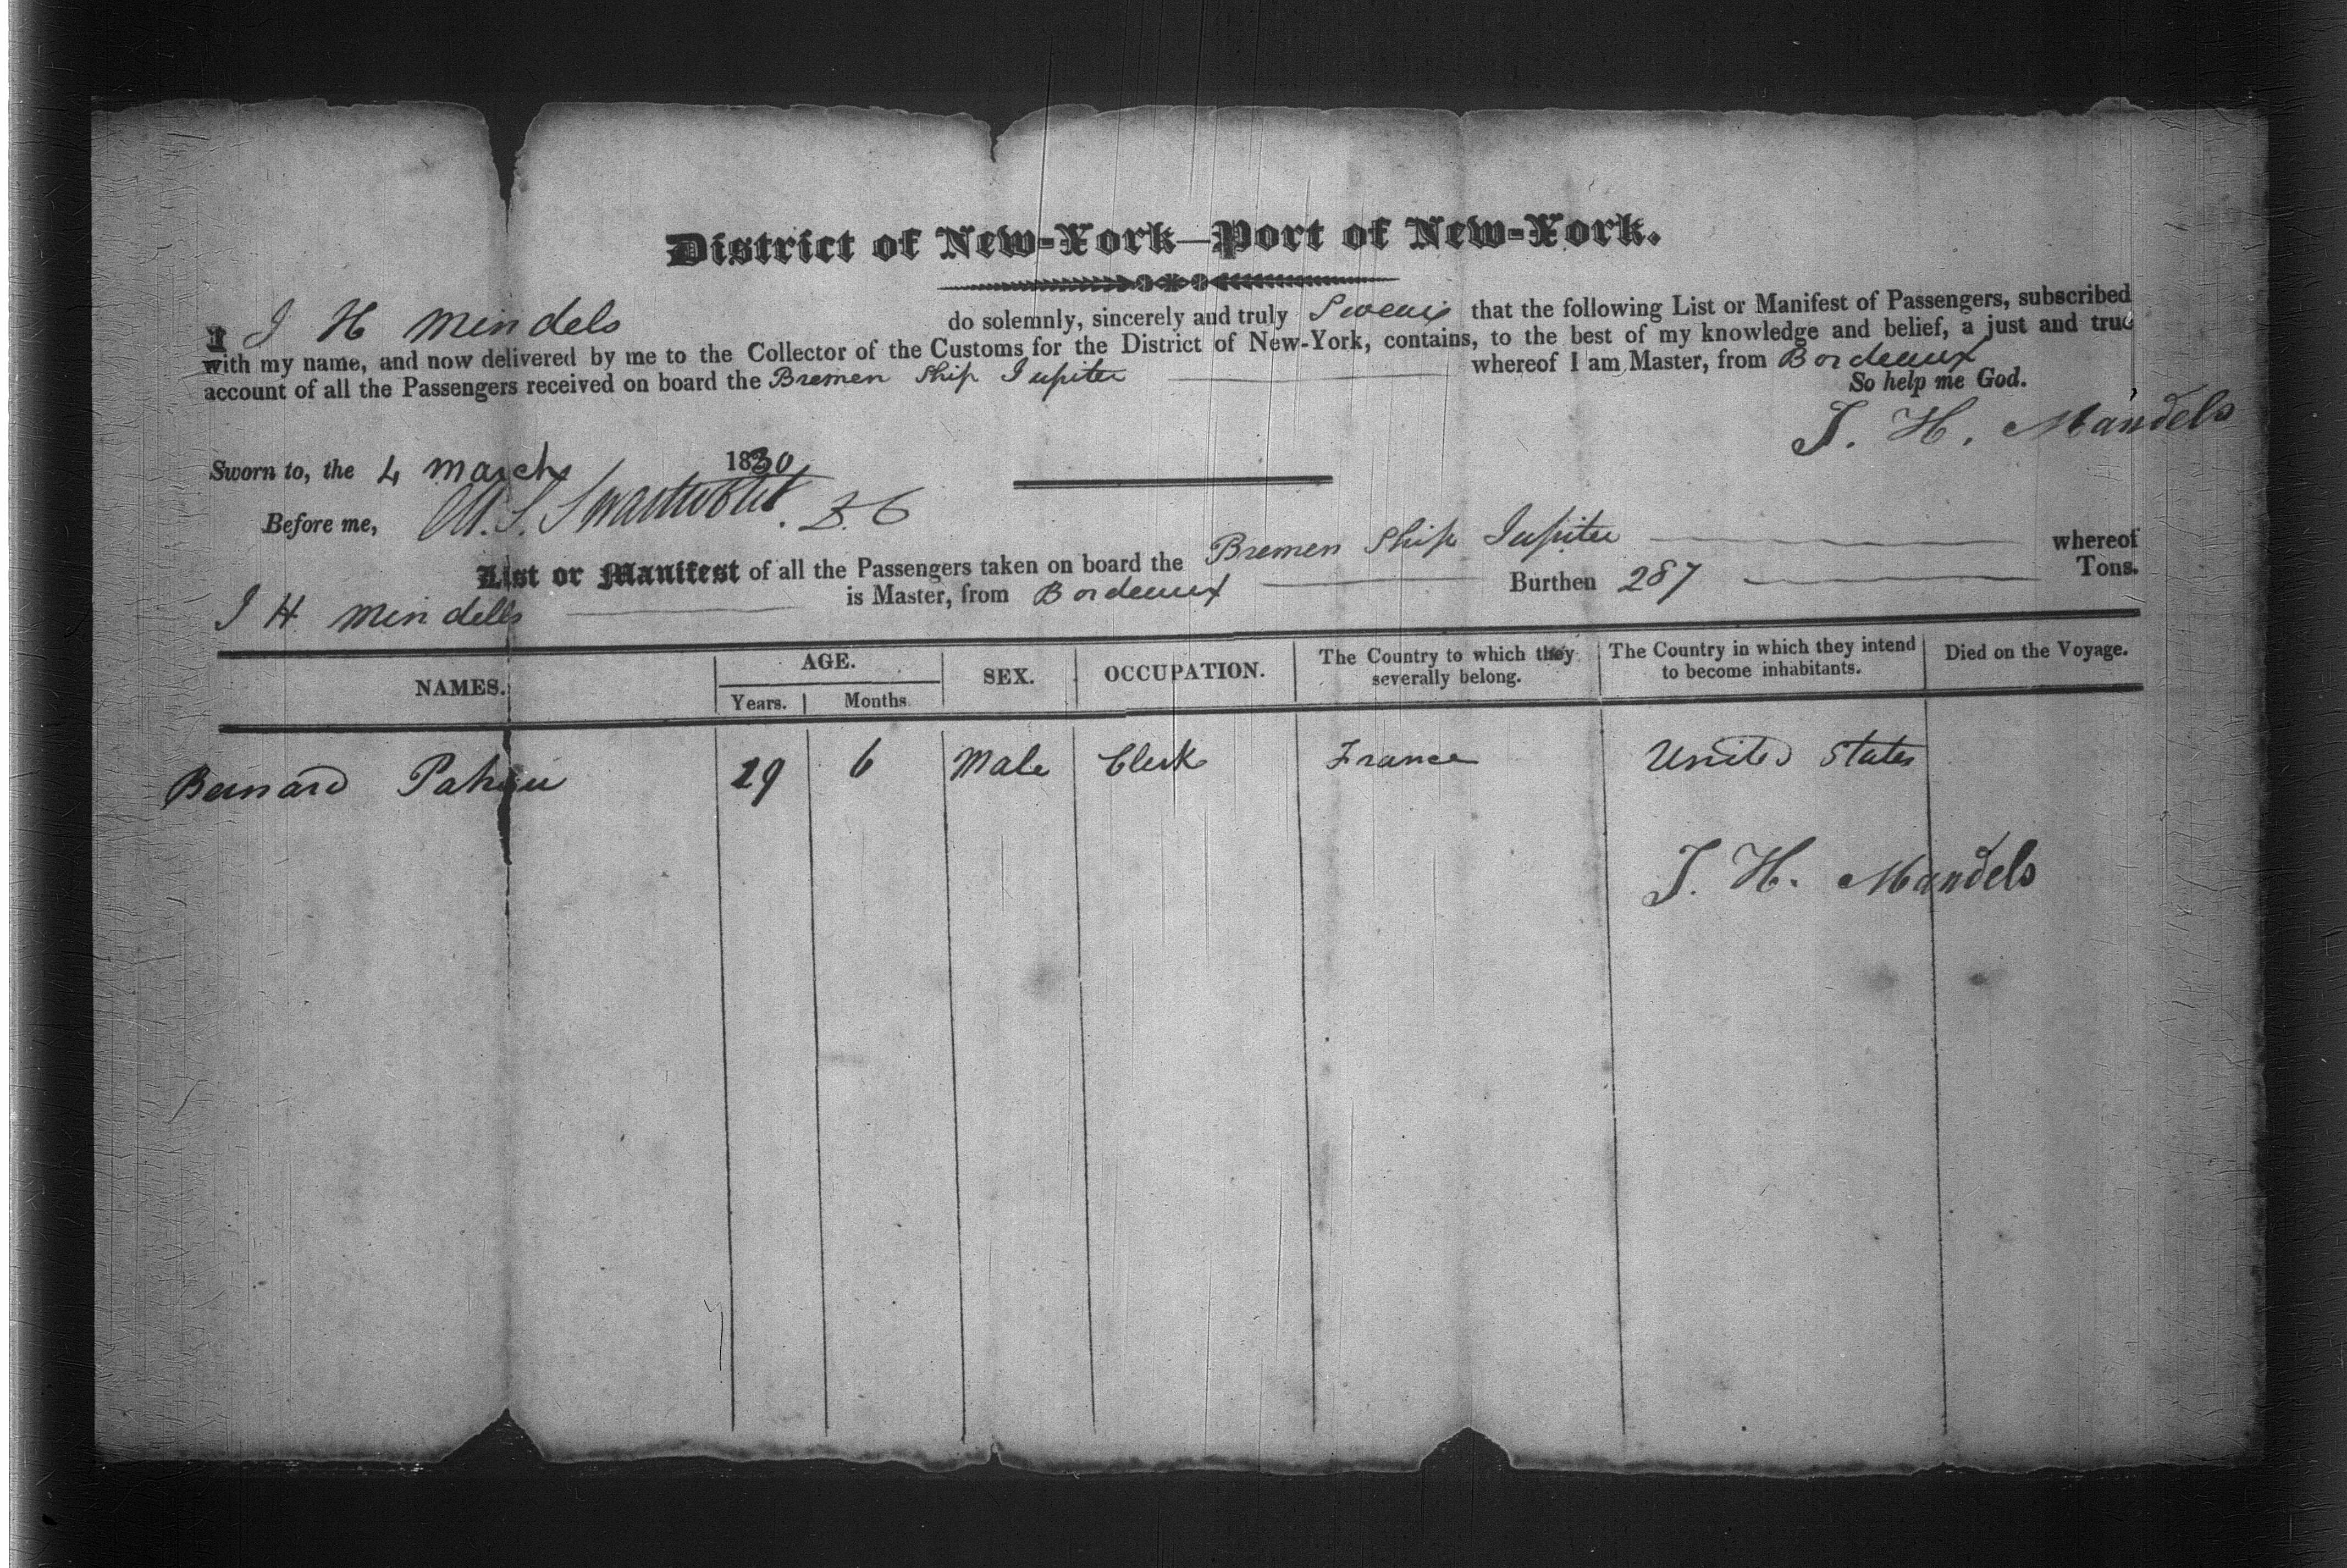 District of New-York—Port of New-York.
I J H Mindels do solemnly, sincerely and truly Swear that the following List or Manifest of Passengers, subscribed
with my name, and now delivered by me to the Collector of the Customs for the District of New-York, contains, to the best of my knowledge and belief, a just and true
account of all the Passengers received on board the Bremen Ship Jupiter whereof I am Master, from Bordeaux
So help me God.
J. H. Mandels
Sworn to, the 4 March 1830
Before me, Swartwout
List or Manifest of all the Passengers taken on board the Bremen Ship Jupiter whereof
J H Mindells is Master, from Bordeaux Burthen 287 Tons.
NAMES. AGE. SEX. OCCUPATION. The Country to which they severally belong. The Country in which they intend to become inhabitants. Died on the Voyage.
Years. Months
Bernard 19 6 Male Clerk France United States
J. H. Mandels